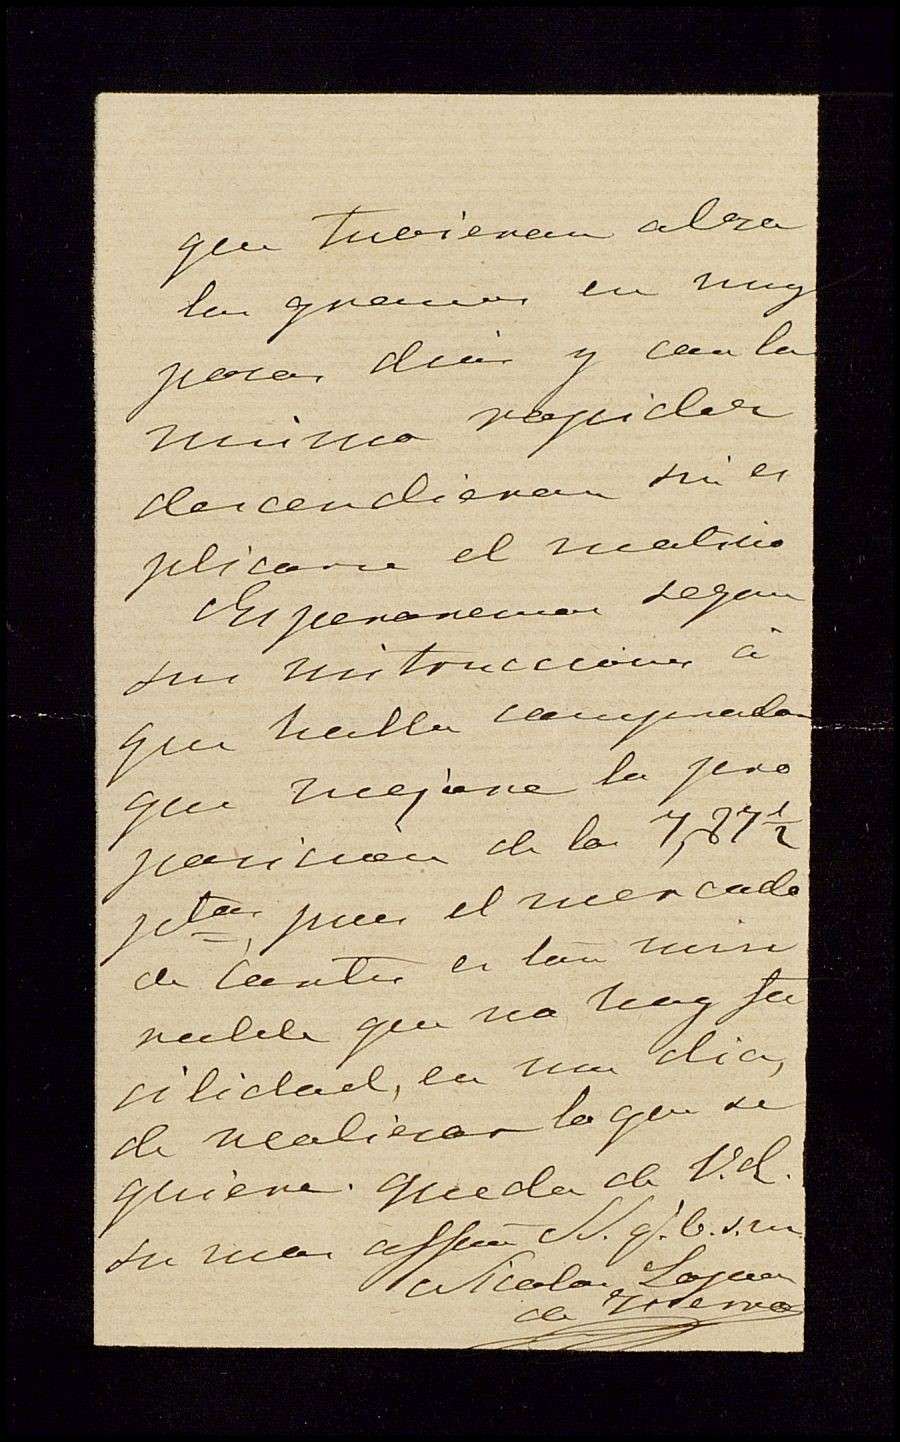 que tubieran alza
los granos en muy
pocos dias y con la
misma rapidez
descendieran sin es
plicarse el motivo
Esperaremos segun
sus instrucciones á
que halla comprador
que mejore la pro
posicion de las 7,87½
ptas, pues el mercado
de es tan mise
rable que no hay fa
cilidad, en un dia,
de realizar lo que se
quiere. queda de V.d.
su mas affmo S. q. b. s. m.
Nicolas
de